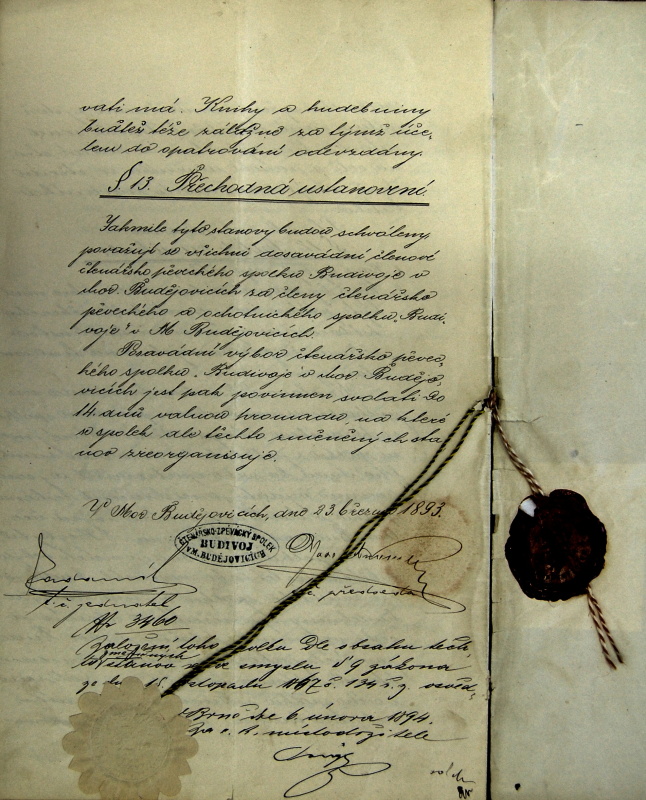 vati má. Knihy a hudebniny
buďtež téže záložně za týmž úče-
lem do opatrování odevzdány.
§. 13. Přechodná ustanovení.
Jakmile tyto stanovy budou schváleny,
považují se všichni dosavádní členové
čtenářsko pěveckého spolku Budivoje v
Mor. Budějovicích za členy čtenářsko
pěveckého a ochotnického spolku „Budi-
voje" v M Budějovicích.
Dosavádní výbor čtenářsko pěvec-
kého spolku „Budivoje" v Mor Budějo-
vicích jest pak povinnen svolati do
14 dnů valnou hromadu, na které
se spolek dle těchto změněných sta-
nov zreorganisuje.
V Mor Budějovicích, dne 23. března 1893.
ČTENÁŘSKO-ZPĚVÁCKÝ SPOLEK
BUDIVOJ
V M. BUDĚJOVICÍCH
t. č. jednatel
t. č. předseda
Nr 3460
Založení toho spolku dle obsahu těch
změněných
to stanov se ve smyslu § 9 zákona
ze dne 15. listopadu 1867 č. 134 ř. z. osvěd-
V Brně dne 6. února 1894.
Za c. k. místodržitele